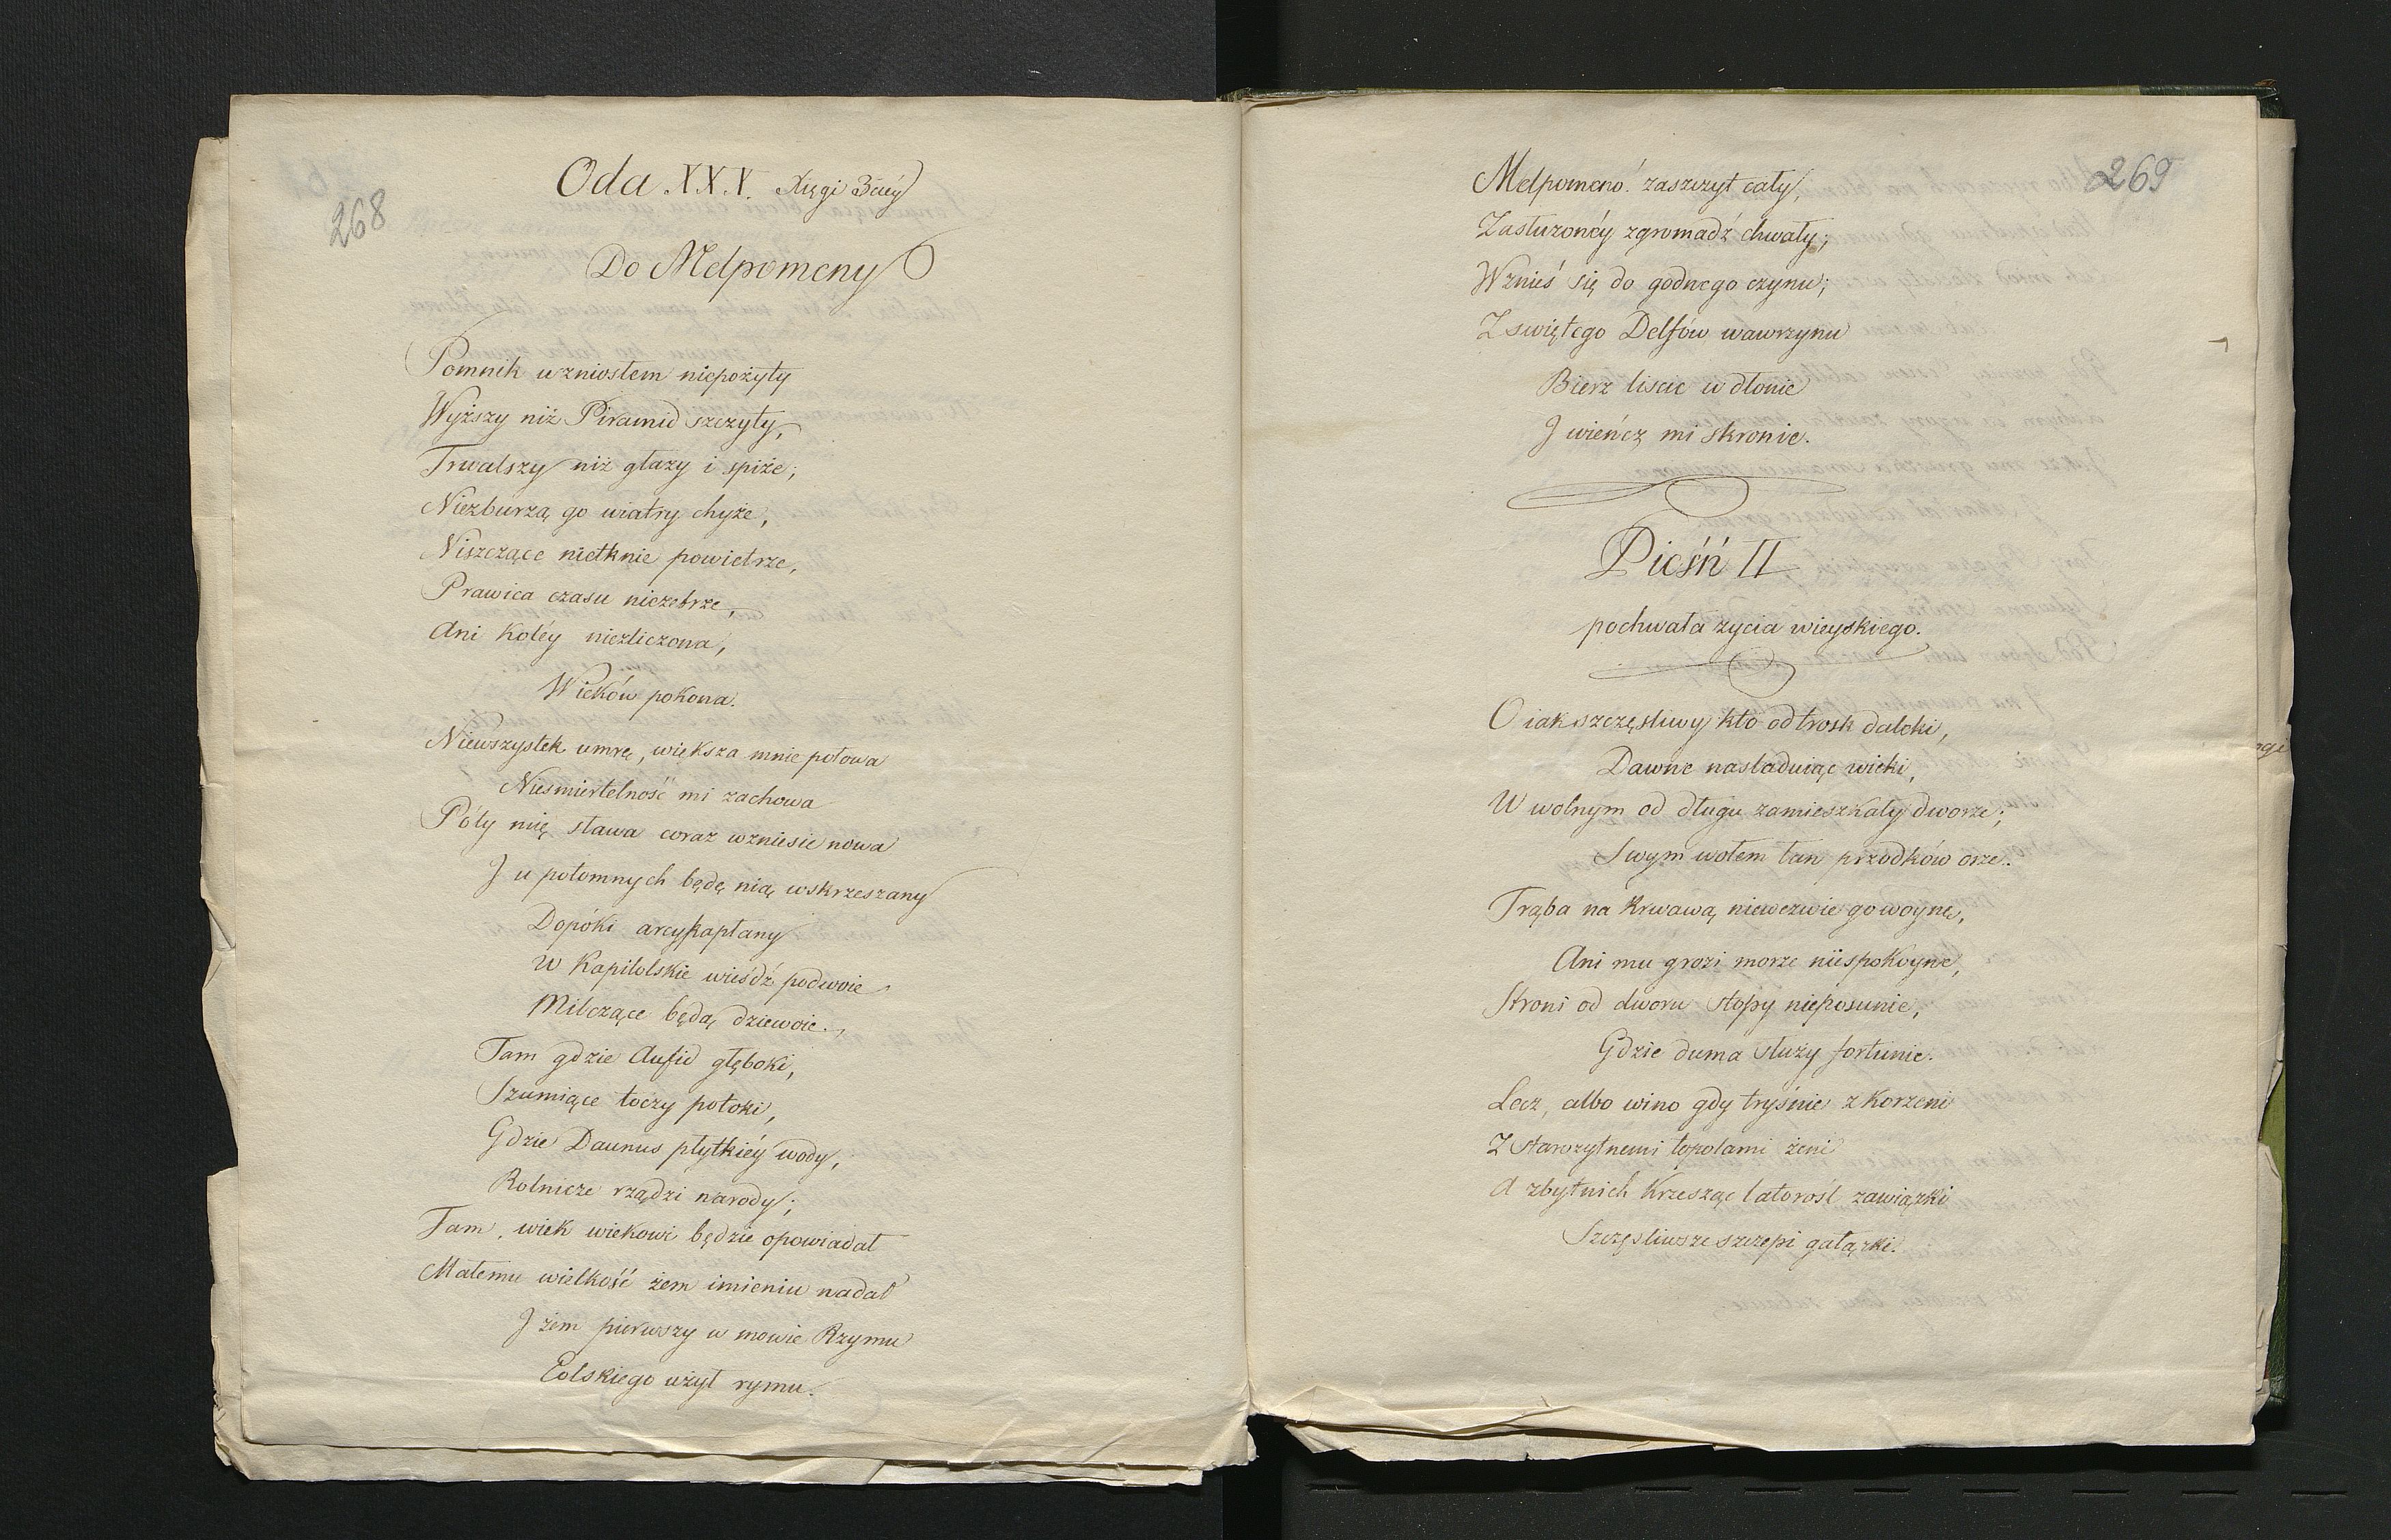 268
Oda XXX. Xięgi 3ciéy
Do Melpomeny
Pomnik wzniosłem niepożyty
Wyższy niż Piramid szczyty,
Trwalszy niż głazy i spiże;
Niezburzą go wiatry chyże,
Niszczące nietknie powietrze,
Prawica czasu niezetrze,
Ani koléy niezliczona,
Wieków pokona.
Niewszystek umrę, większa mnie połowa
Nieśmiertelność mi zachowa
Póty mię sława coraz wzniesie nowa
J u potomnych będę nią wskrzeszany
Dopóki arcykapłany
W Kapitolskie wieśdź podwoie
Milczące będą dziewoie.,
Tam gdzie Aufid głęboki,
Szumiące toczy potoki,
Gdzie Daunus płytkiéy wody,
Rolnicze rządzi narody;
Tam, wiek wiekowi będzie opowiadał
Małemu wielkość żem imieniu nadał
J żem pierwszy w mowie Rzymu
Eolskiego użył rymu.
269
Melpomeno! zaszczyt cały,
Zasłużonéy zgromadź chwały;
Wznieś się do godnego czynu;
Z swiętego Delfów wawrzynu
Bierz liscie w dłonie
J wieńcz mi skronie.
Pieśń II
pochwała życia wieyskiego.
O iak szczęsliwy kto od trosk daleki,
Dawne nasladuiąc wieki,
W wolnym od długu zamieszkały dworze;
Swym wołem łan przodków orze.
Trąba na krwawą niewezwie go woynę,
Ani mu grozi morze niespokoyne,
Stroni od dworu stopy nieposunie,
Gdzie duma służy fortunie.
Lecz, albo wino gdy tryśnie z korzeni
Z starożytnemi topolami żeni
A zbytnich krzesząc latorośl zawiązki
Szczęsliwsze szczepi gałązki.